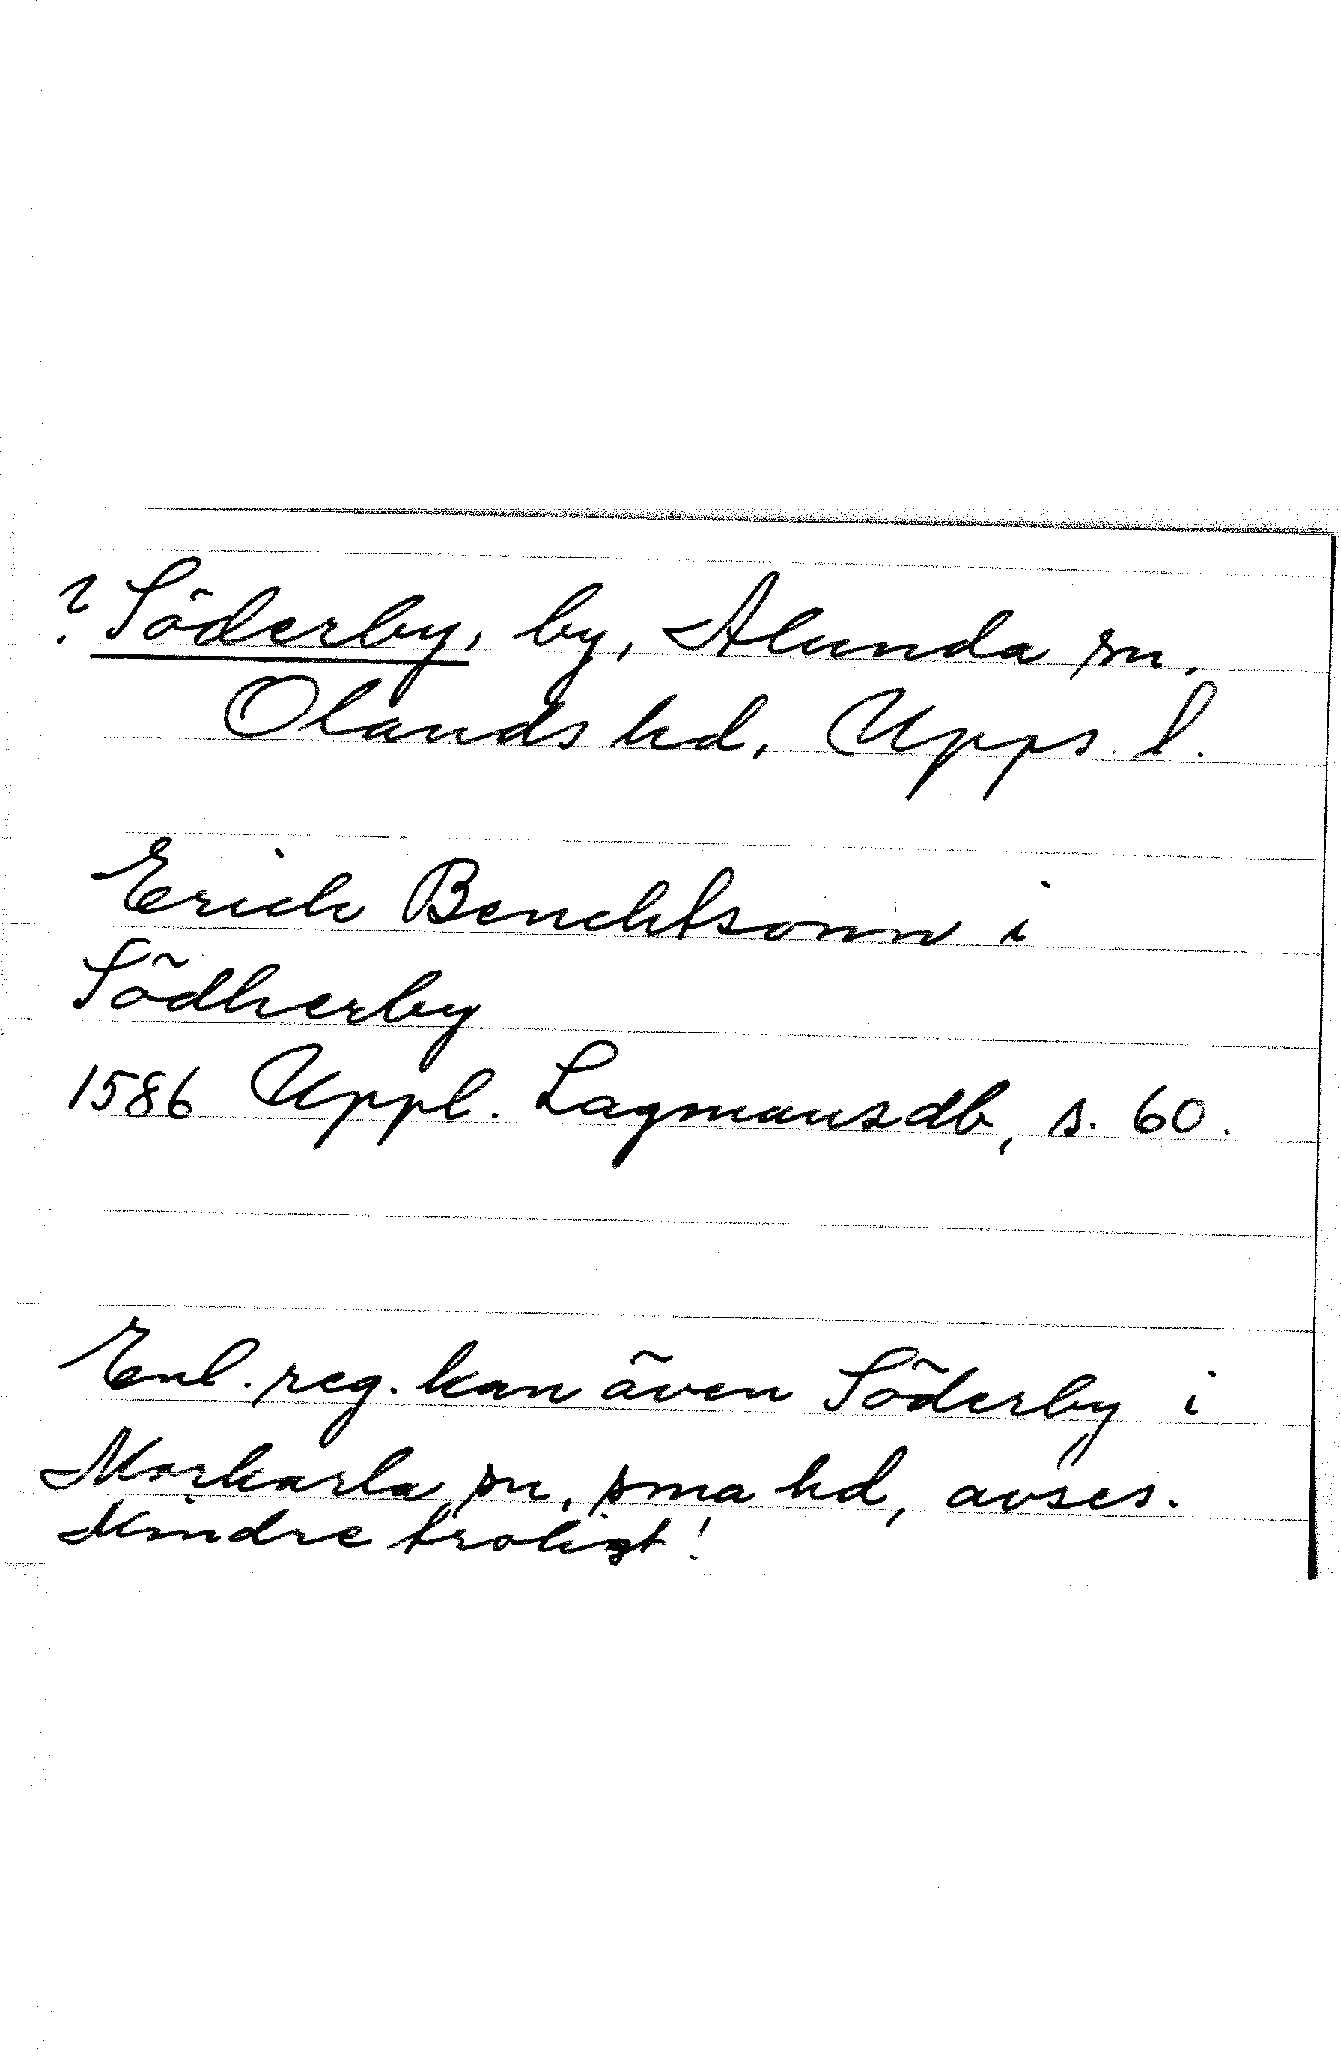 ? Söderby, by, Alunda sn.
Olands hd, Upps. l.
Erich Benchtsonn i
Södherby
1586 Uppl. Lagmansdb, s. 60.
Enl. reg. kan även Söderby i
Morkarla sn, sma hd, avses.
Mindre troligt!